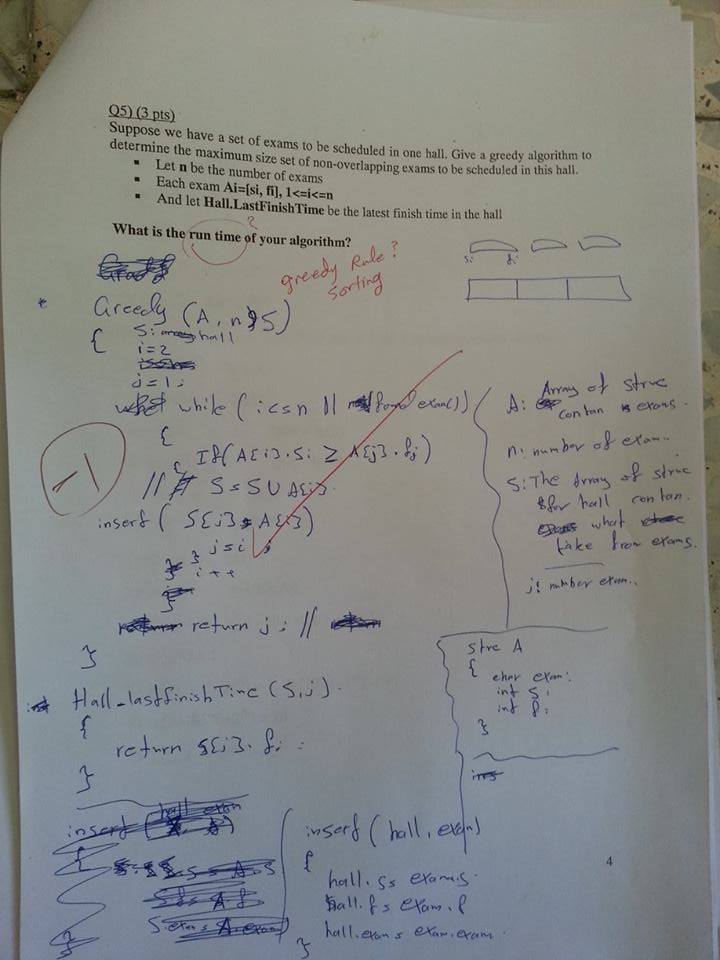 Q5) (3 pts)
Suppose we have a set of exams to be scheduled in one hall. Give a greedy algorithm to
determine the maximum size set of non-overlapping exams to be scheduled in this hall.
▪ Let n be the number of exams
▪ Each exam Ai=[si, fi], 1<=i<=n
▪ And let Hall.LastFinishTime be the latest finish time in the hall
What is the run time of your algorithm?
?
greedy Rule?
sorting
si fi
Greedy (A, n, S)
{ S: hall
i=2
j=1;
while (i<=n || found exam())
{
{ If(A[i].Si ≥ A[j].fj)
// S = S U A[i].
insert ( S[j], A[i])
j=i ;
}
i++
}
return j; //
}
-1
A: Array of struc
contan exams.
n: number of exam..
S: The Array of struc
for hall contan.
what
take from exams.
j: number exam..
strc A
{
char exam;
int S;
int f;
}
Hall_lastfinishTime (S,j).
{
return S[j].f;
}
hall exam
insert (
{
S = A.S
S.f = A.f
S.exam = A.exam
}
insert (hall, exam)
{
hall.s = exam.s
hall.f = exam.f
hall.exam = exam.exam
}
4